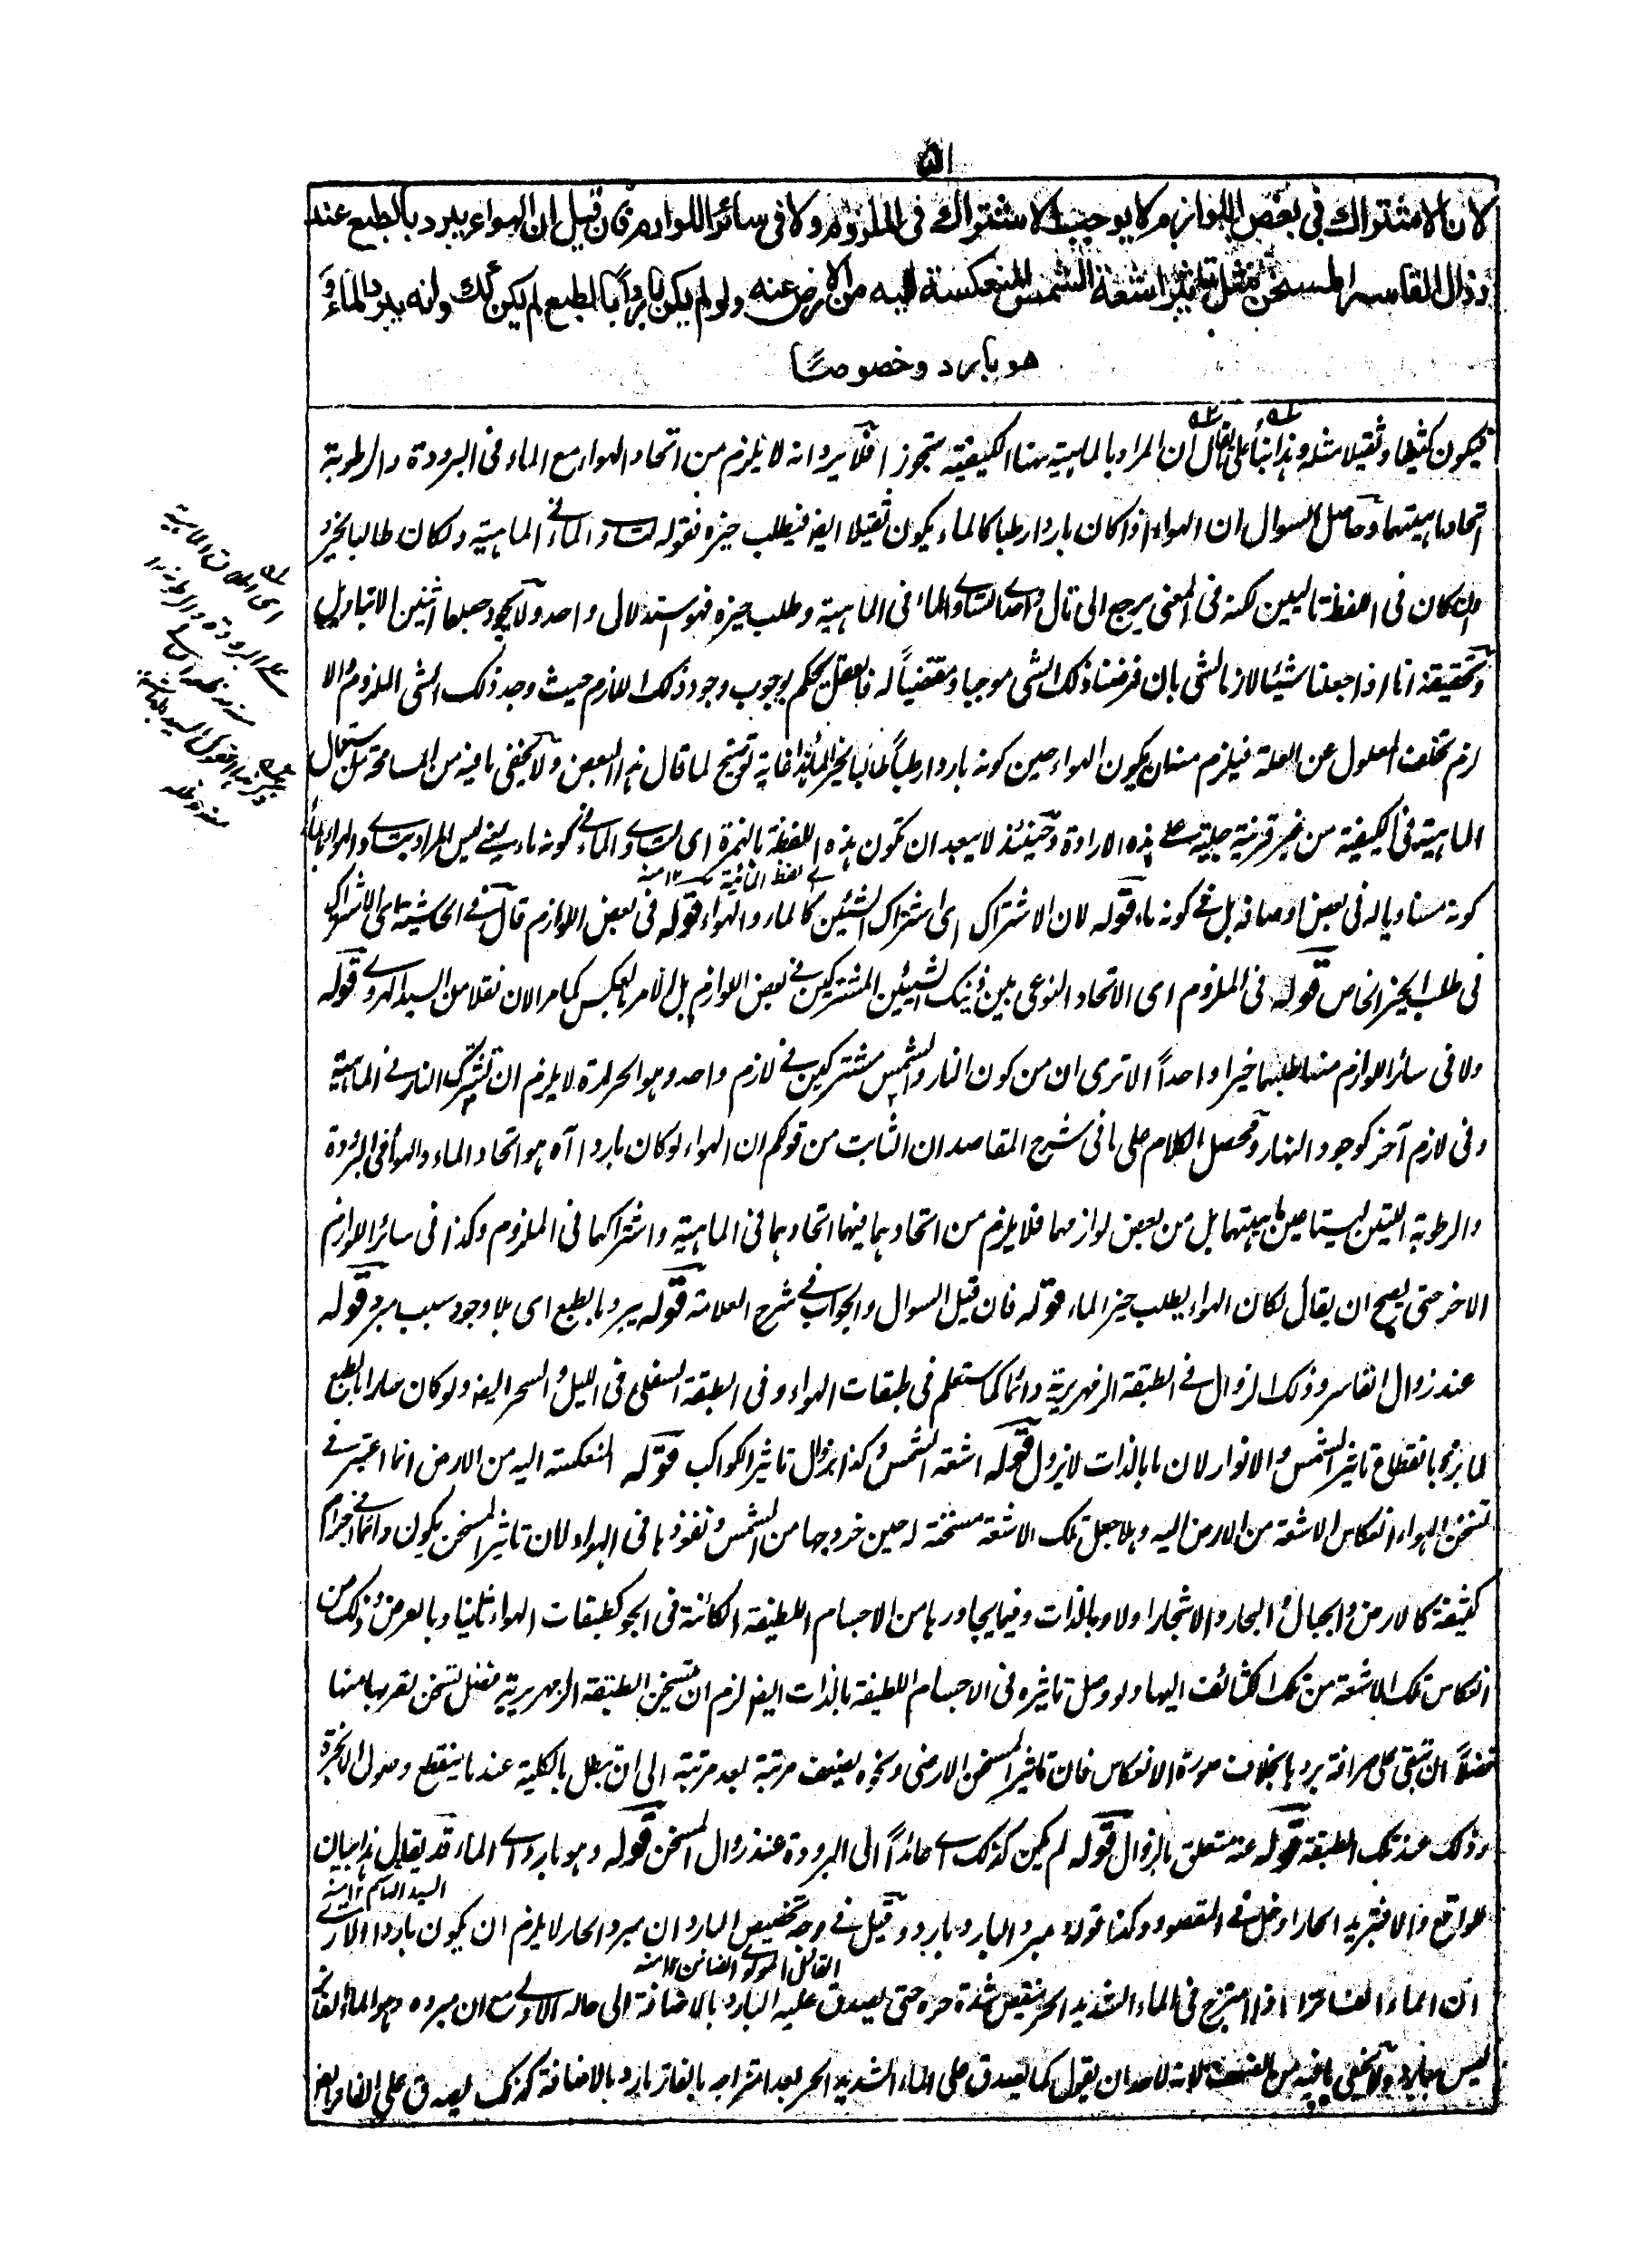 ٥١
لان الاشتراك في بعض اللوازم لا يوجب الاشتراك في الملزوم ولا في سائر اللوازم فان قيل ان الهواء يبرد بالطبع عند
زوال القاسر المسخن مثل تاثير اشعة الشمس المنعكسة اليه من الارض عنه ولو لم يكن بارداً بالطبع لم يكن كذلك ولانه يبرد الماء و
هو بارد وخصوصًا
فيكون كثيفا وثقيلا مثله وهذا بناء على ان يقال ان المراد بالماهية ههنا الكيفية تجوزا فلا يرد انه لا يلزم من اتحاد الهواء مع الماء في البرودة والرطوبة
اتحاد ماهيتهما وحاصل السوال ان الهواء اذا كان باردا رطبا كالماء يكون ثقيلا ايضا فيطلب حيزه فقوله لساوى الماء في الماهية ولكان طالبا لحيزه
وان كان في اللفظ تاليين لكنه في المعنى يرجع الى تال واحد اي لساوى الماء في الماهية وطلب حيزه فهو استدلال واحد ولا يجوز جعلها اثنين الا بتاويل
وتحقيقه انا اذا جعلنا شيئا لازما لشى بان فرضنا ذلك الشى موجبا ومقتضياً له فالعقل يحكم بوجوب وجود ذلك اللازم حيث وجد ذلك الشى الملزوم والا
لزم تخلف المعلول عن العلة فيلزم منه ان يكون الهواء حين كونه باردا رطباً طالبا لحيز الماء هذا غاية توضيح لما قال هذا البعض ولا يخفى ما فيه من المسامحة من استعمال
الماهية في الكيفية من غير قرينة جلية على هذه الارادة وحينئذ لا يبعد ان تكون هذه اللفظة بالهمزة اى لساوى الماء في كونه ماء يعني ليس المراد بتساوى الهواء للماء
اے لفظ المائية ١٢ منه
كونه مساويا له في بعض اوصافه بل في كونه ماء قوله لان الاشتراك اى اشتراك الشيئين كالماء والهواء قوله في بعض اللوازم قال في الحاشية اى الاشتراك
في طلب الحيز الخاص قوله في الملزوم اى الاتحاد النوعي بين ذينك الشيئين المشتركين في بعض اللوازم بل الامر بالعكس كما مر الان نقلا من السيد الهروى قوله
ولا في سائر اللوازم منها طلبهما حيزا واحداً الا ترى ان من كون النار والشمس مشتركين في لازم واحد وهو الحرارة لا يلزم ان تشترك النار في الماهية
وفي لازم آخر كوجود النهار ومحصل الكلام على ما في شرح المقاصد ان الثابت من قولكم ان الهواء لو كان باردا آه هو اتحاد الماء والهواء في البرودة
والرطوبة اللتين ليستا عين ماهيتهما بل من بعض لوازمهما فلا يلزم من اتحادهما فيها اتحادهما في الماهية واشتراكهما في الملزوم وكذا في سائر اللوازم
الاخر حتى يصح ان يقال لكان الهواء يطلب حيز الماء قوله فان قيل السوال والجواب في شرح العلامة قوله يبرد بالطبع اى بلا وجود سبب مبرد قوله
عند زوال القاسر وذلك الزوال في الطبقة الزمهريرية دائما كما ستعلم في طبقات الهواء وفي الطبقة السفلى في الليل والسحر ايضا ولو كان حارا بالطبع
لما برد بانقطاع تاثير الشمس والانوار لان ما بالذات لا يزول قوله اشعة الشمس وكذا بزوال تاثير الكواكب قوله المنعكسة اليه من الارض انما اعتبر في
تسخن الهواء انعكاس الاشعة من الارض اليه ولا جعل تلك الاشعة مسخنة له حين خروجها من الشمس ونفوذها في الهواء لان تاثير المسخن يكون دائما في اجرام
كثيفة كالارض والجبال والبحار والاشجار اولا وبالذات وفيما يجاورها من الاجسام اللطيفة الكائنة في الجو كطبقات الهواء ثانيا وبالعرض وذلك من
انعكاس تلك الاشعة من تلك الكثائف اليها ولو وصل تاثيره في الاجسام اللطيفة بالذات ايضا لزم ان تسخن الطبقة الزمهريرية فضل تسخن لقربها منها
فضلاً ان تبقى على صرافة بردها بخلاف صورة الانعكاس فان تاثير المسخن الارضى ونحوه يضعف مرتبة بعد مرتبة الى ان تبطل بالكلية عند ما ينقطع وصول الابخرة
وذلك عند تلك الطبقة قوله عنه متعلق بالزوال قوله لم يكن كذلك اے عائداً الى البرودة عند زوال المسخن قوله وهو بارد اے الماء قد يقال هذا بيان
السيد الهاشم ١٢ منه
للواقع والا فتبريد الحار ادخل في المقصود وكذا قوله ومبرد البارد بارد وقيل في وجه تخصيص البارد ان مبرد الحار لا يلزم ان يكون باردا الا ترى
القائل المولوي الضامن ١٢ منه
ان الماء الفاتر اذا امتزج في الماء الشديد الحر ينقص شدة حره حتى يصدق عليه البارد بالاضافة الى حاله الاولى مع ان مبرده وهو الماء الفاتر
ليس بباردٍ ولا يخفى ما فيه من الضعف لانه لاحد ان يقول كما يصدق على الماء الشديد الحر بعد امتزاجه بالفاتر بارد بالاضافة كذلك يصدق على الفاتر ايضا